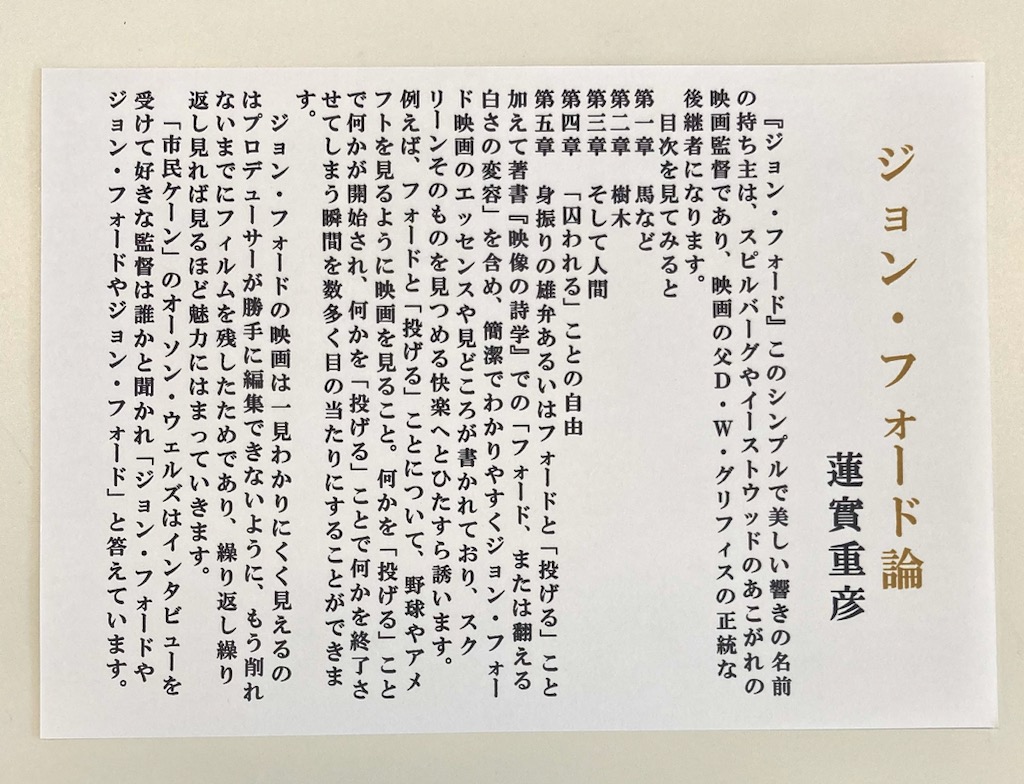 ジョン・フォード論
蓮實重彦
『ジョン・フォード』このシンプルで美しい響きの名前
の持ち主は、スピルバーグやイーストウッドのあこがれの
映画監督であり、映画の父D・W・グリフィスの正統な
後継者になります。
目次を見てみると
第一章　馬など
第二章　樹木
第三章　そして人間
第四章　「囚われる」ことの自由
第五章　身振りの雄弁あるいはフォードと「投げる」こと
加えて著書『映像の詩学』での「フォード、または翻える
白さの変容」を含め、簡潔でわかりやすくジョン・フォー
ド映画のエッセンスや見どころが書かれており、スク
リーンそのものを見つめる快楽へとひたすら誘います。
例えば、フォードと「投げる」ことについて、野球やアメ
フトを見るように映画を見ること。何かを「投げる」こと
で何かが開始され、何かを「投げる」ことで何かを終了さ
せてしまう瞬間を数多く目の当たりにすることができま
す。
ジョン・フォードの映画は一見わかりにくく見えるの
はプロデューサーが勝手に編集できないように、もう削れ
ないまでにフィルムを残したためであり、繰り返し繰り
返し見れば見るほど魅力にはまっていきます。
「市民ケーン」のオーソン・ウェルズはインタビューを
受けて好きな監督は誰かと聞かれ「ジョン・フォードや
ジョン・フォードやジョン・フォード」と答えています。